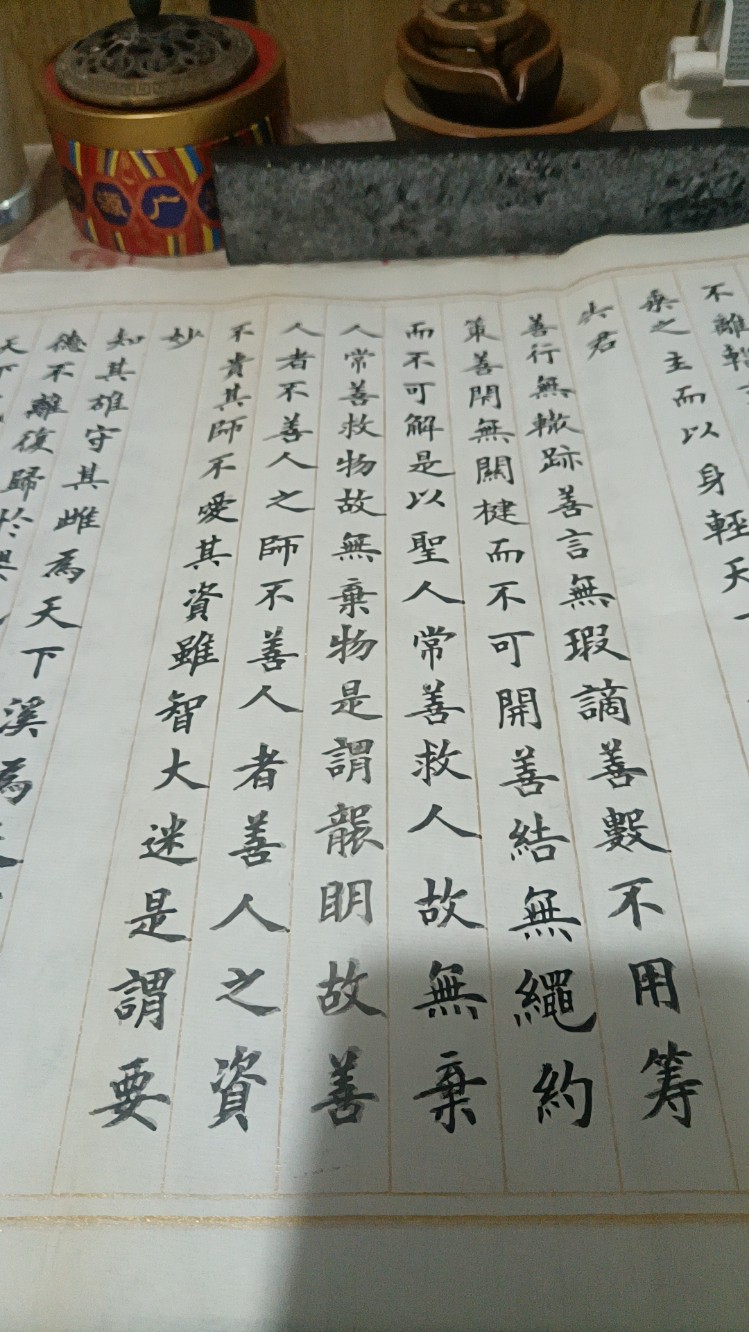 不離輜
乘之主而以身輕天
失君
善行無轍跡善言無瑕謫善數不用筹
策善閉無關楗而不可開善結無繩約
而不可解是以聖人常善救人故無棄
人常善救物故無棄物是謂襲眀故善
人者不善人之師不善人者善人之資
不貴其師不愛其資雖智大迷是謂要
妙
知其雄守其雌為天下溪為
德不離復歸於
天下
广